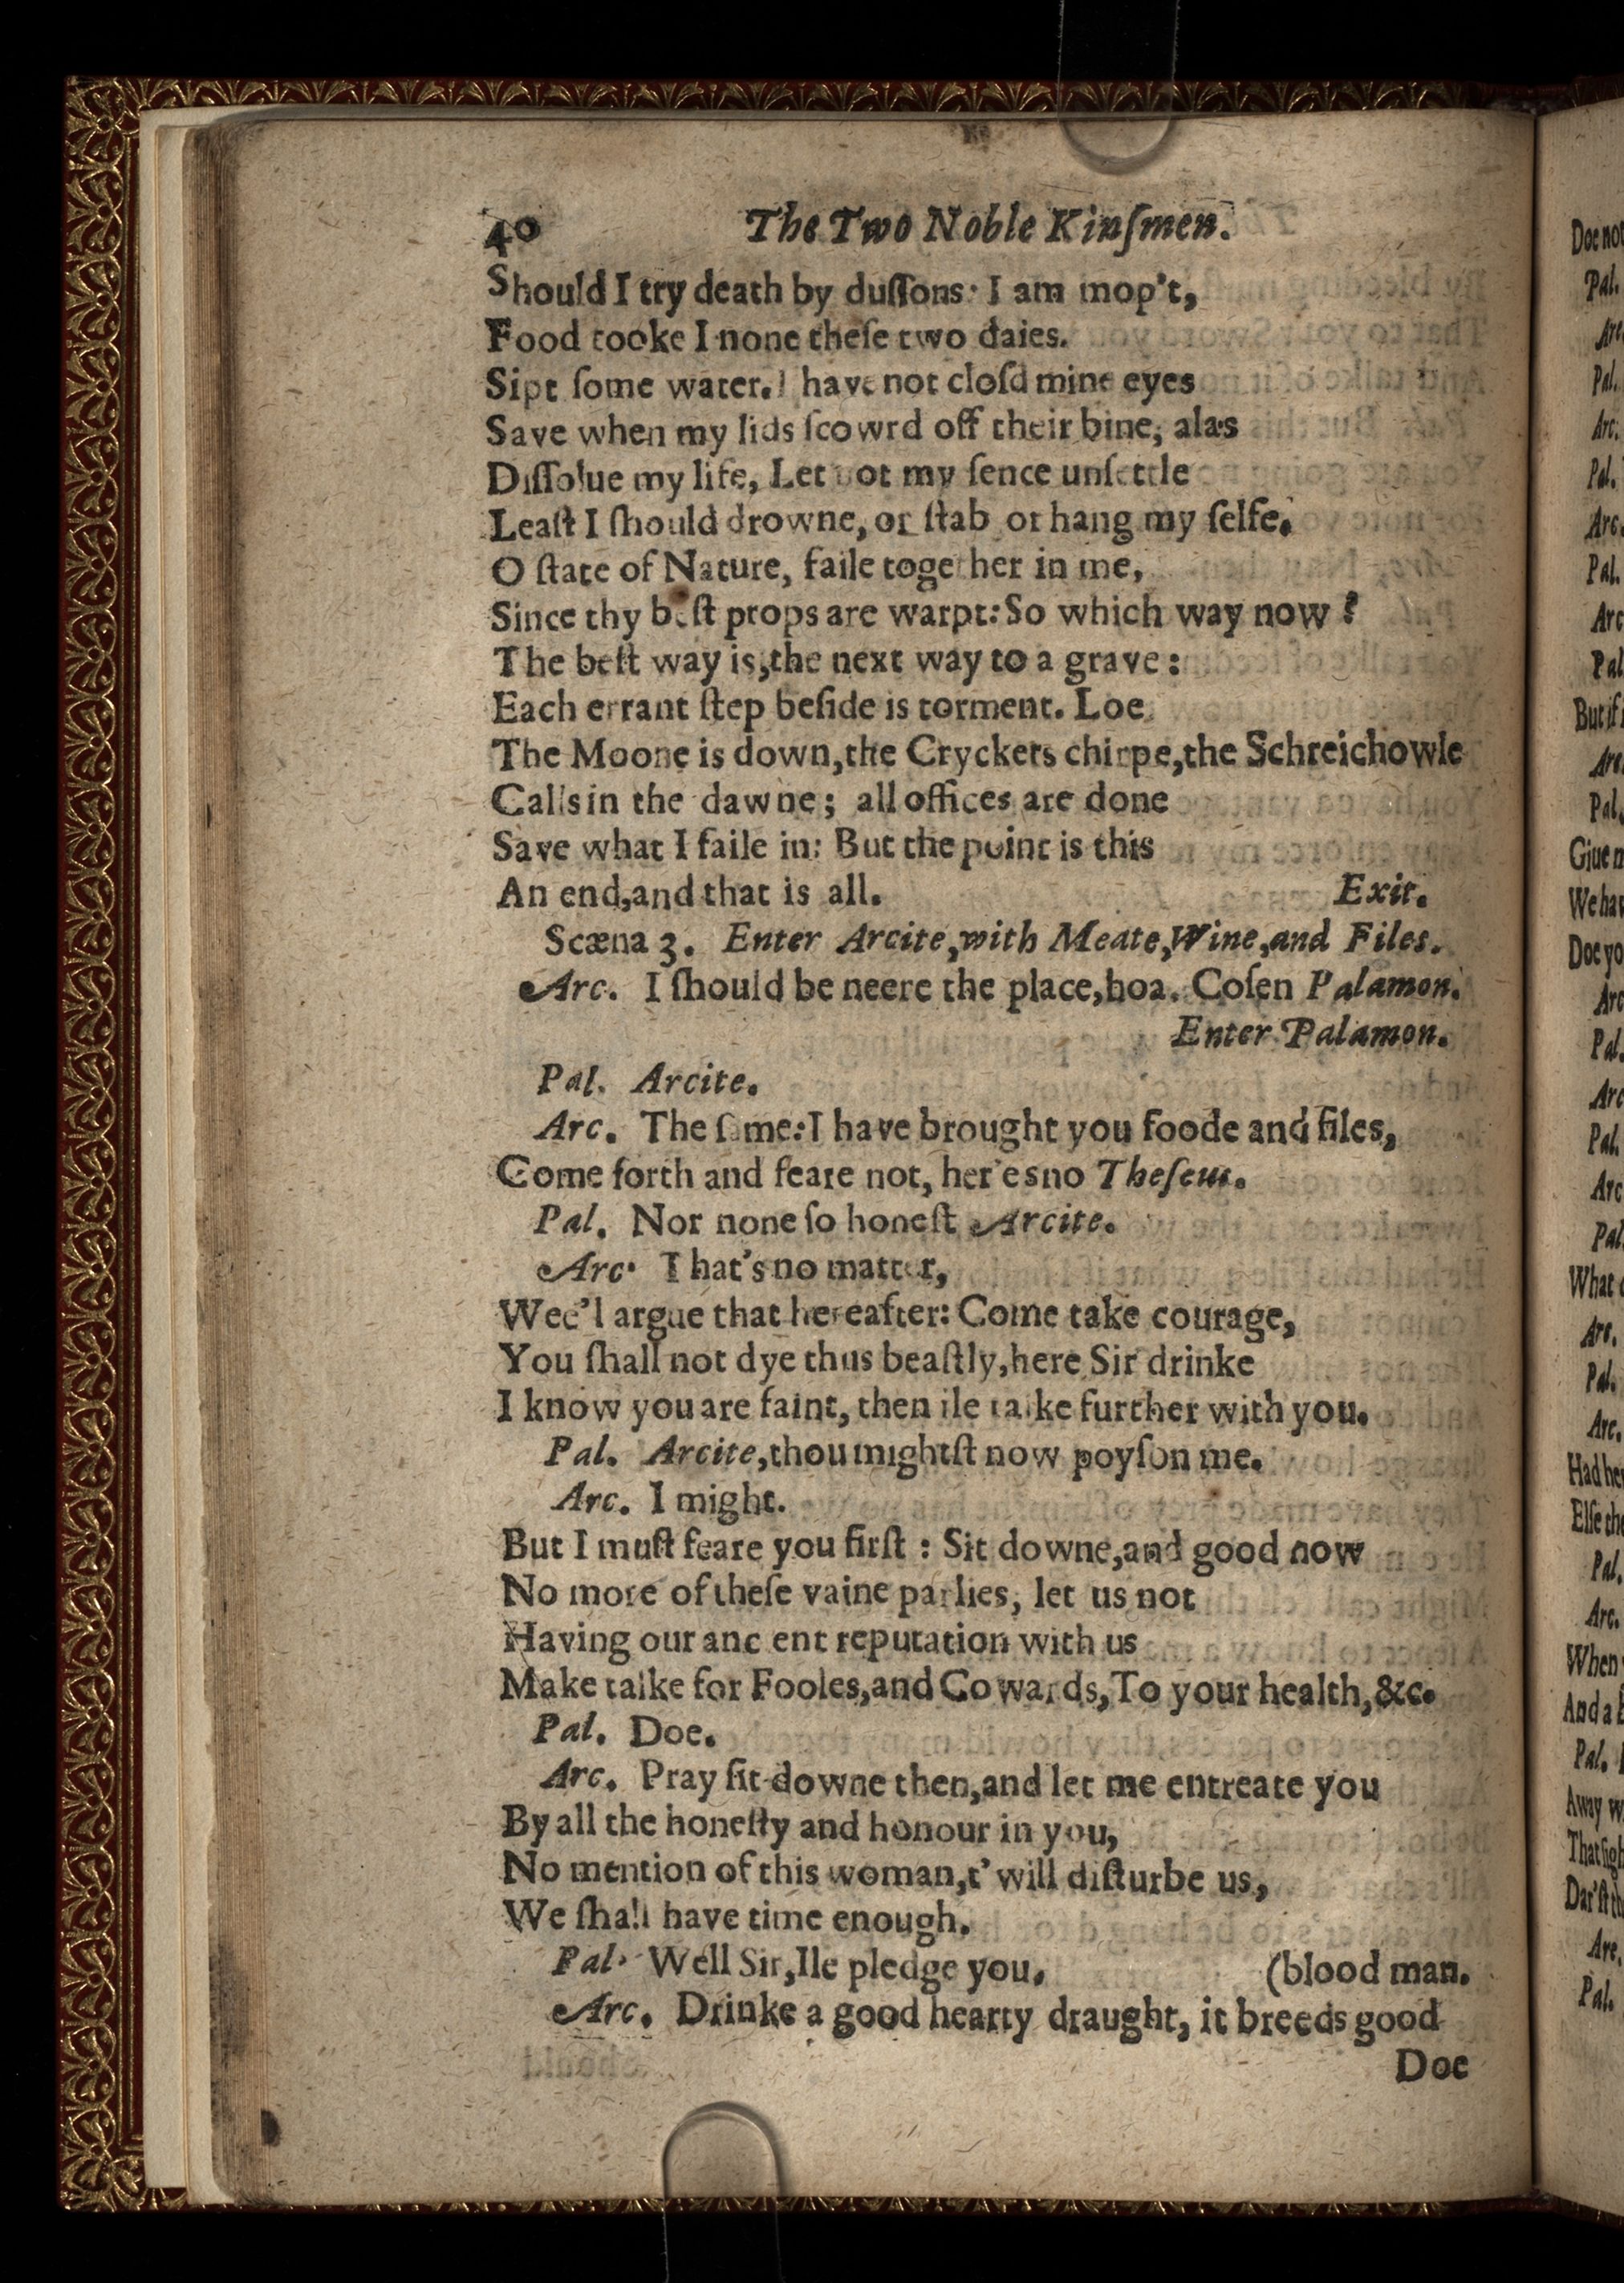 40 The Two Noble Kinſmen.
Should I try death by duſſons· I am mop't,
Food tooke I none theſe two daies.
Sipt ſome water. I have not cloſd mine eyes
Save when my lids ſcowrd off their bine, alas
Diſſolue my life, Let not my ſence unſettle
Leaſt I ſhould drowne, or ſtab or hang my ſelfe.
O ſtate of Nature, faile together in me,
Since thy beſt props are warpt: So which way now?
The beſt way is, the next way to a grave:
Each errant ſtep beſide is torment. Loe
The Moone is down, the Cryckets chirpe, the Schreichowle
Calls in the dawne; all offices are done
Save what I faile in: But the point is this
An end, and that is all. Exit.
Scæna 3. Enter Arcite, with Meate, Wine, and Files.
Arc. I ſhould be neere the place, hoa. Coſen Palamon.
Enter Palamon.
Pal. Arcite.
Arc. The ſame: I have brought you foode and files,
Come forth and feare not, her'es no Theſeus.
Pal. Nor none ſo honeſt Arcite.
Arc· That's no matter,
Wee'l argue that hereafter: Come take courage,
You ſhall not dye thus beaſtly, here Sir drinke
I know you are faint, then ile talke further with you.
Pal. Arcite, thou mightſt now poyſon me.
Arc. I might.
But I muſt feare you firſt : Sit downe, and good now
No more of theſe vaine parlies, let us not
Having our ancient reputation with us
Make talke for Fooles, and Cowards, To your health, &c.
Pal. Doe.
Arc. Pray ſit downe then, and let me entreate you
By all the honeſty and honour in you,
No mention of this woman, t' will diſturbe us,
We ſhall have time enough.
Pal· Well Sir, Ile pledge you. (blood man.
Arc. Drinke a good hearty draught, it breeds good
Doe
Doe not
Pal.
Arc.
Pal.
Arc.
Pal.
Arc.
Pal.
Arc
Pal
But if
Arc
Pal.
Giue
We hav
Doe yo
Arc
Pal.
Arc
Pal.
Arc
Pal
What
Arc.
Pal.
Arc.
Had he
Elſe the
Pal.
Arc.
When
And a
Pal.
Away w
That
Dar'ſt
Arc.
Pal.